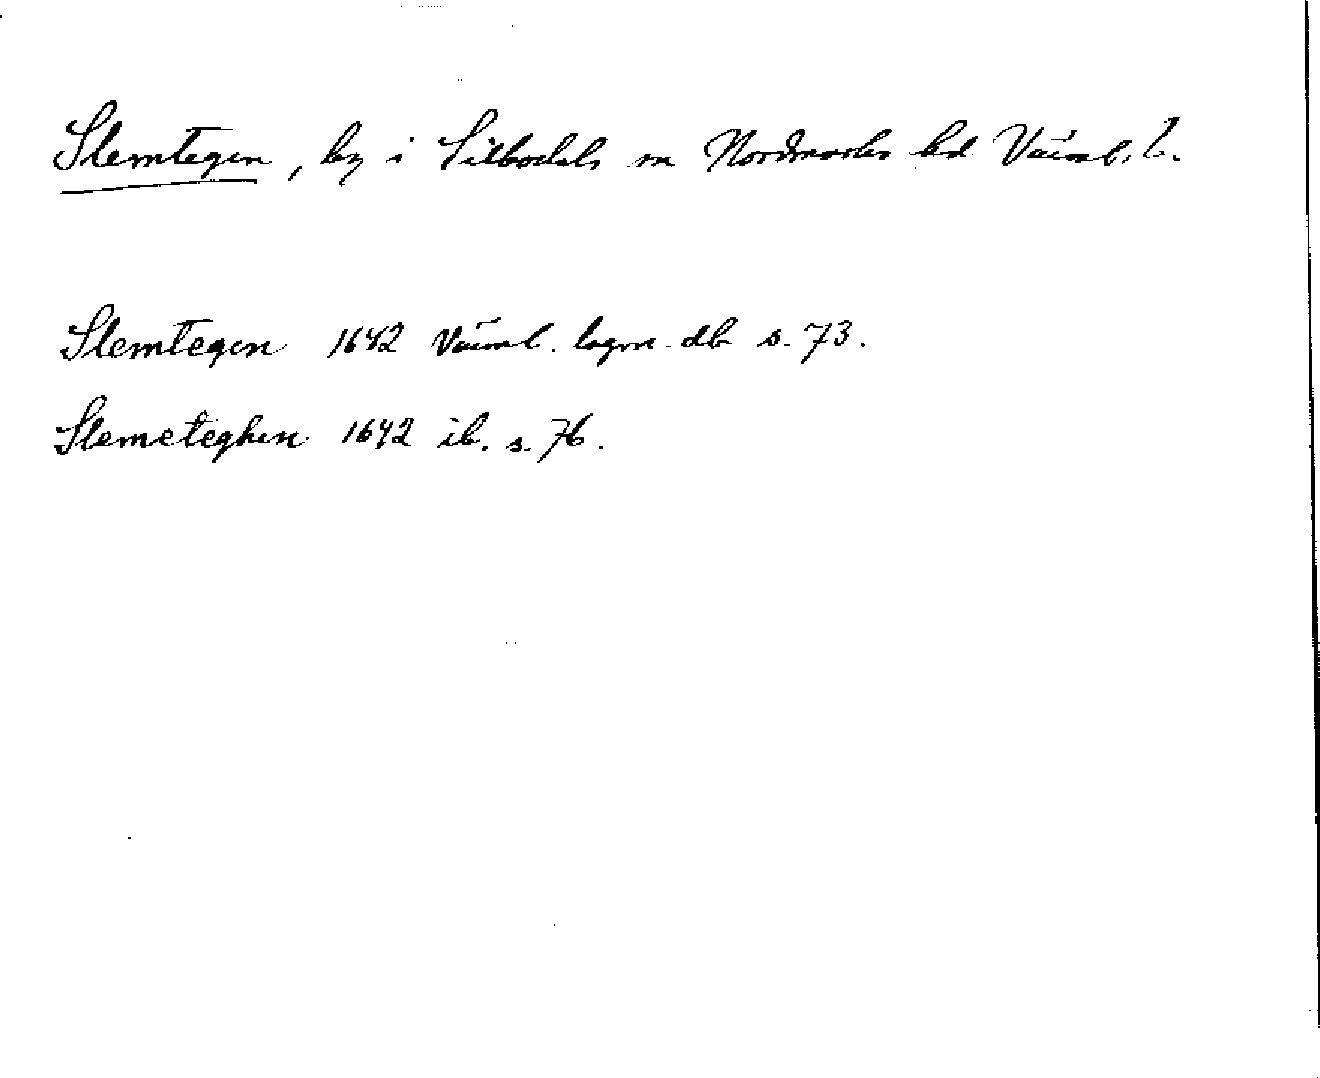 Slemtegen, by i Silbodals sn Nordmarks hd Värml. l.
Slemtegen 1642 Värml. lagm. db s. 73.
Slemeteghen 1642 ib. s. 76.